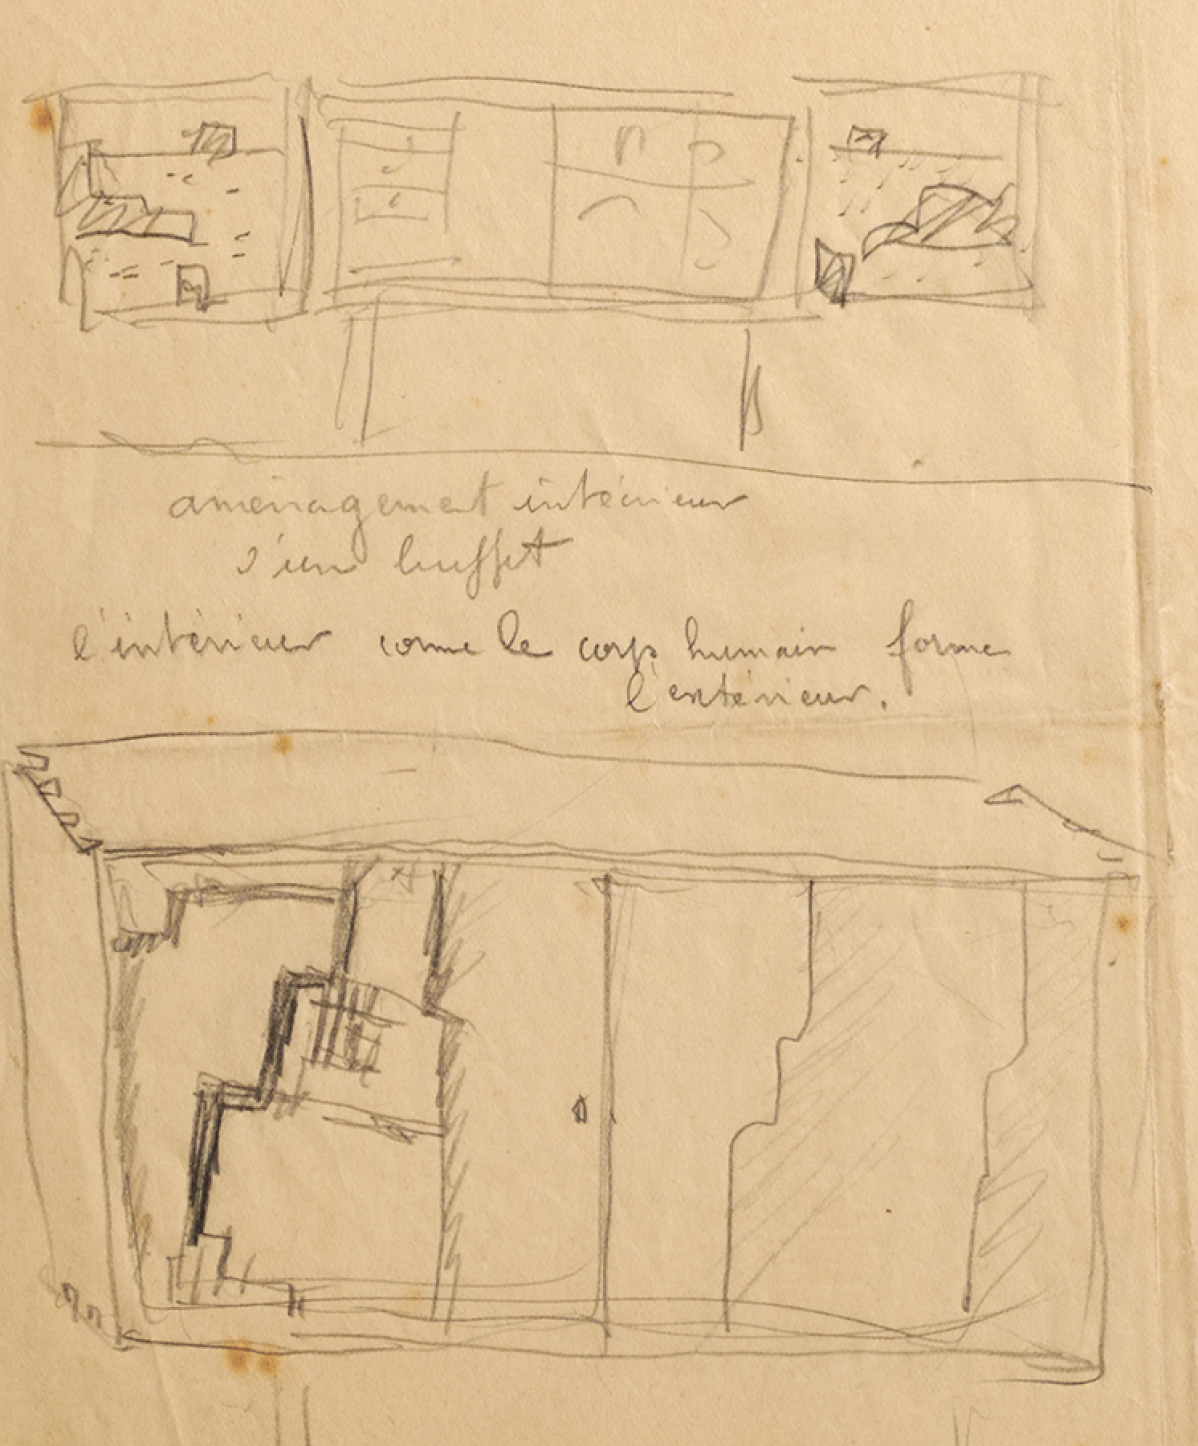 aménagement intérieur
d'un buffet
l'intérieur comme le corps humain forme
l'extérieur.